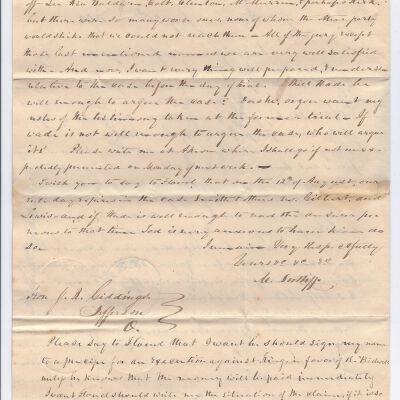 off Geo Asa Baldwin, Colt, Clinton, McMurran, perhaps Kirk-
but there were so many worse ones, none of whom the other party
would strike that we could not reach them - All of the jury except
those last mentioned men we are very well satisfied
with. And now, I want every thing well prepared,
relative to the case before the day of trial. Will Wade be
well enough to argue the case? Foster, or you want my
notes of the testimony taken at the former trial. If
Wade is not well enough to argue the case, who will argue
it? Please write me at Akron where I shall go if not unex-
pectedly prevented on Monday of next week. -
I wish you to say to Flavel that on the 12th of August, our
expires in the case Smith & others vs. Gilbert, and
Lewis and if Wade is well enough to read the
to that time Tod is very anxious to have him do
so. I remain Very Respectfully
Yours &c &c &c
M. Sutliff
Hon J. R. Giddings
Jefferson
O.
Please say to Flavel that I want he should sign my name
to a precipe for an Execution against King in favor of K. Bidwell
unless he knows that the money will be paid immediately
I want he should write me the situation of the claim, if it is so